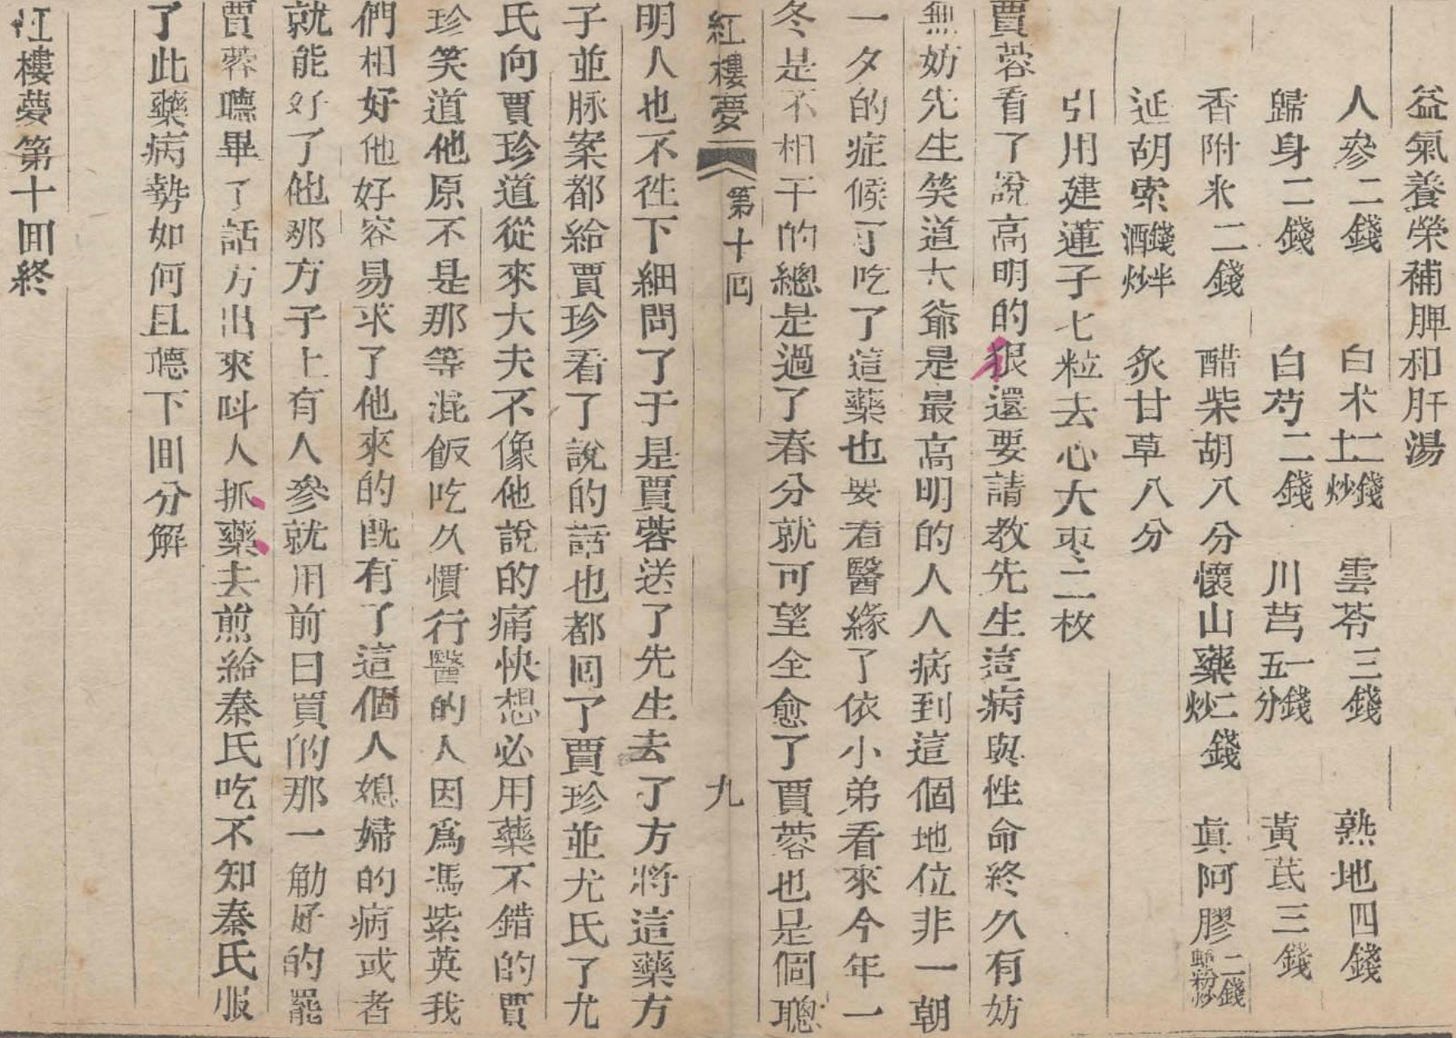 益氣養榮補脾和肝湯
人參二錢 白术二錢土炒 雲苓三錢 熟地四錢
歸身二錢 白芍二錢 川芎一錢五分 黃芪三錢
香附米二錢 醋柴胡八分 懷山藥二錢炒 眞阿膠二錢蛤粉炒
延胡索錢半酒炒 炙甘草八分
引用建蓮子七粒去心大枣二枚
賈蓉看了說高明的狠還要請教先生這病與性命終久有妨
無妨先生笑道大爺是最高明的人人病到這個地位非一朝
一夕的症候了吃了這藥也要看醫緣了依小弟看來今年一
冬是不相干的總是過了春分就可望全愈了賈蓉也是個聰
紅樓夢 第十囘 九
明人也不徃下細問了于是賈蓉送了先生去了方將這藥方
子並脉案都給賈珍看了說的話也都囘了賈珍並尤氏了尤
氏向賈珍道從來大夫不像他說的痛快想必用藥不錯的賈
珍笑道他原不是那等混飯吃久慣行醫的人因爲馮紫英我
們相好他好容易求了他來的旣有了這個人媳婦的病或者
就能好了他那方子上有人參就用前日買的那一觔好的罷
賈蓉聽畢了話方出來呌人抓藥去煎給秦氏吃不知秦氏服
了此藥病勢如何且聽下囘分解
紅樓夢第十囘終